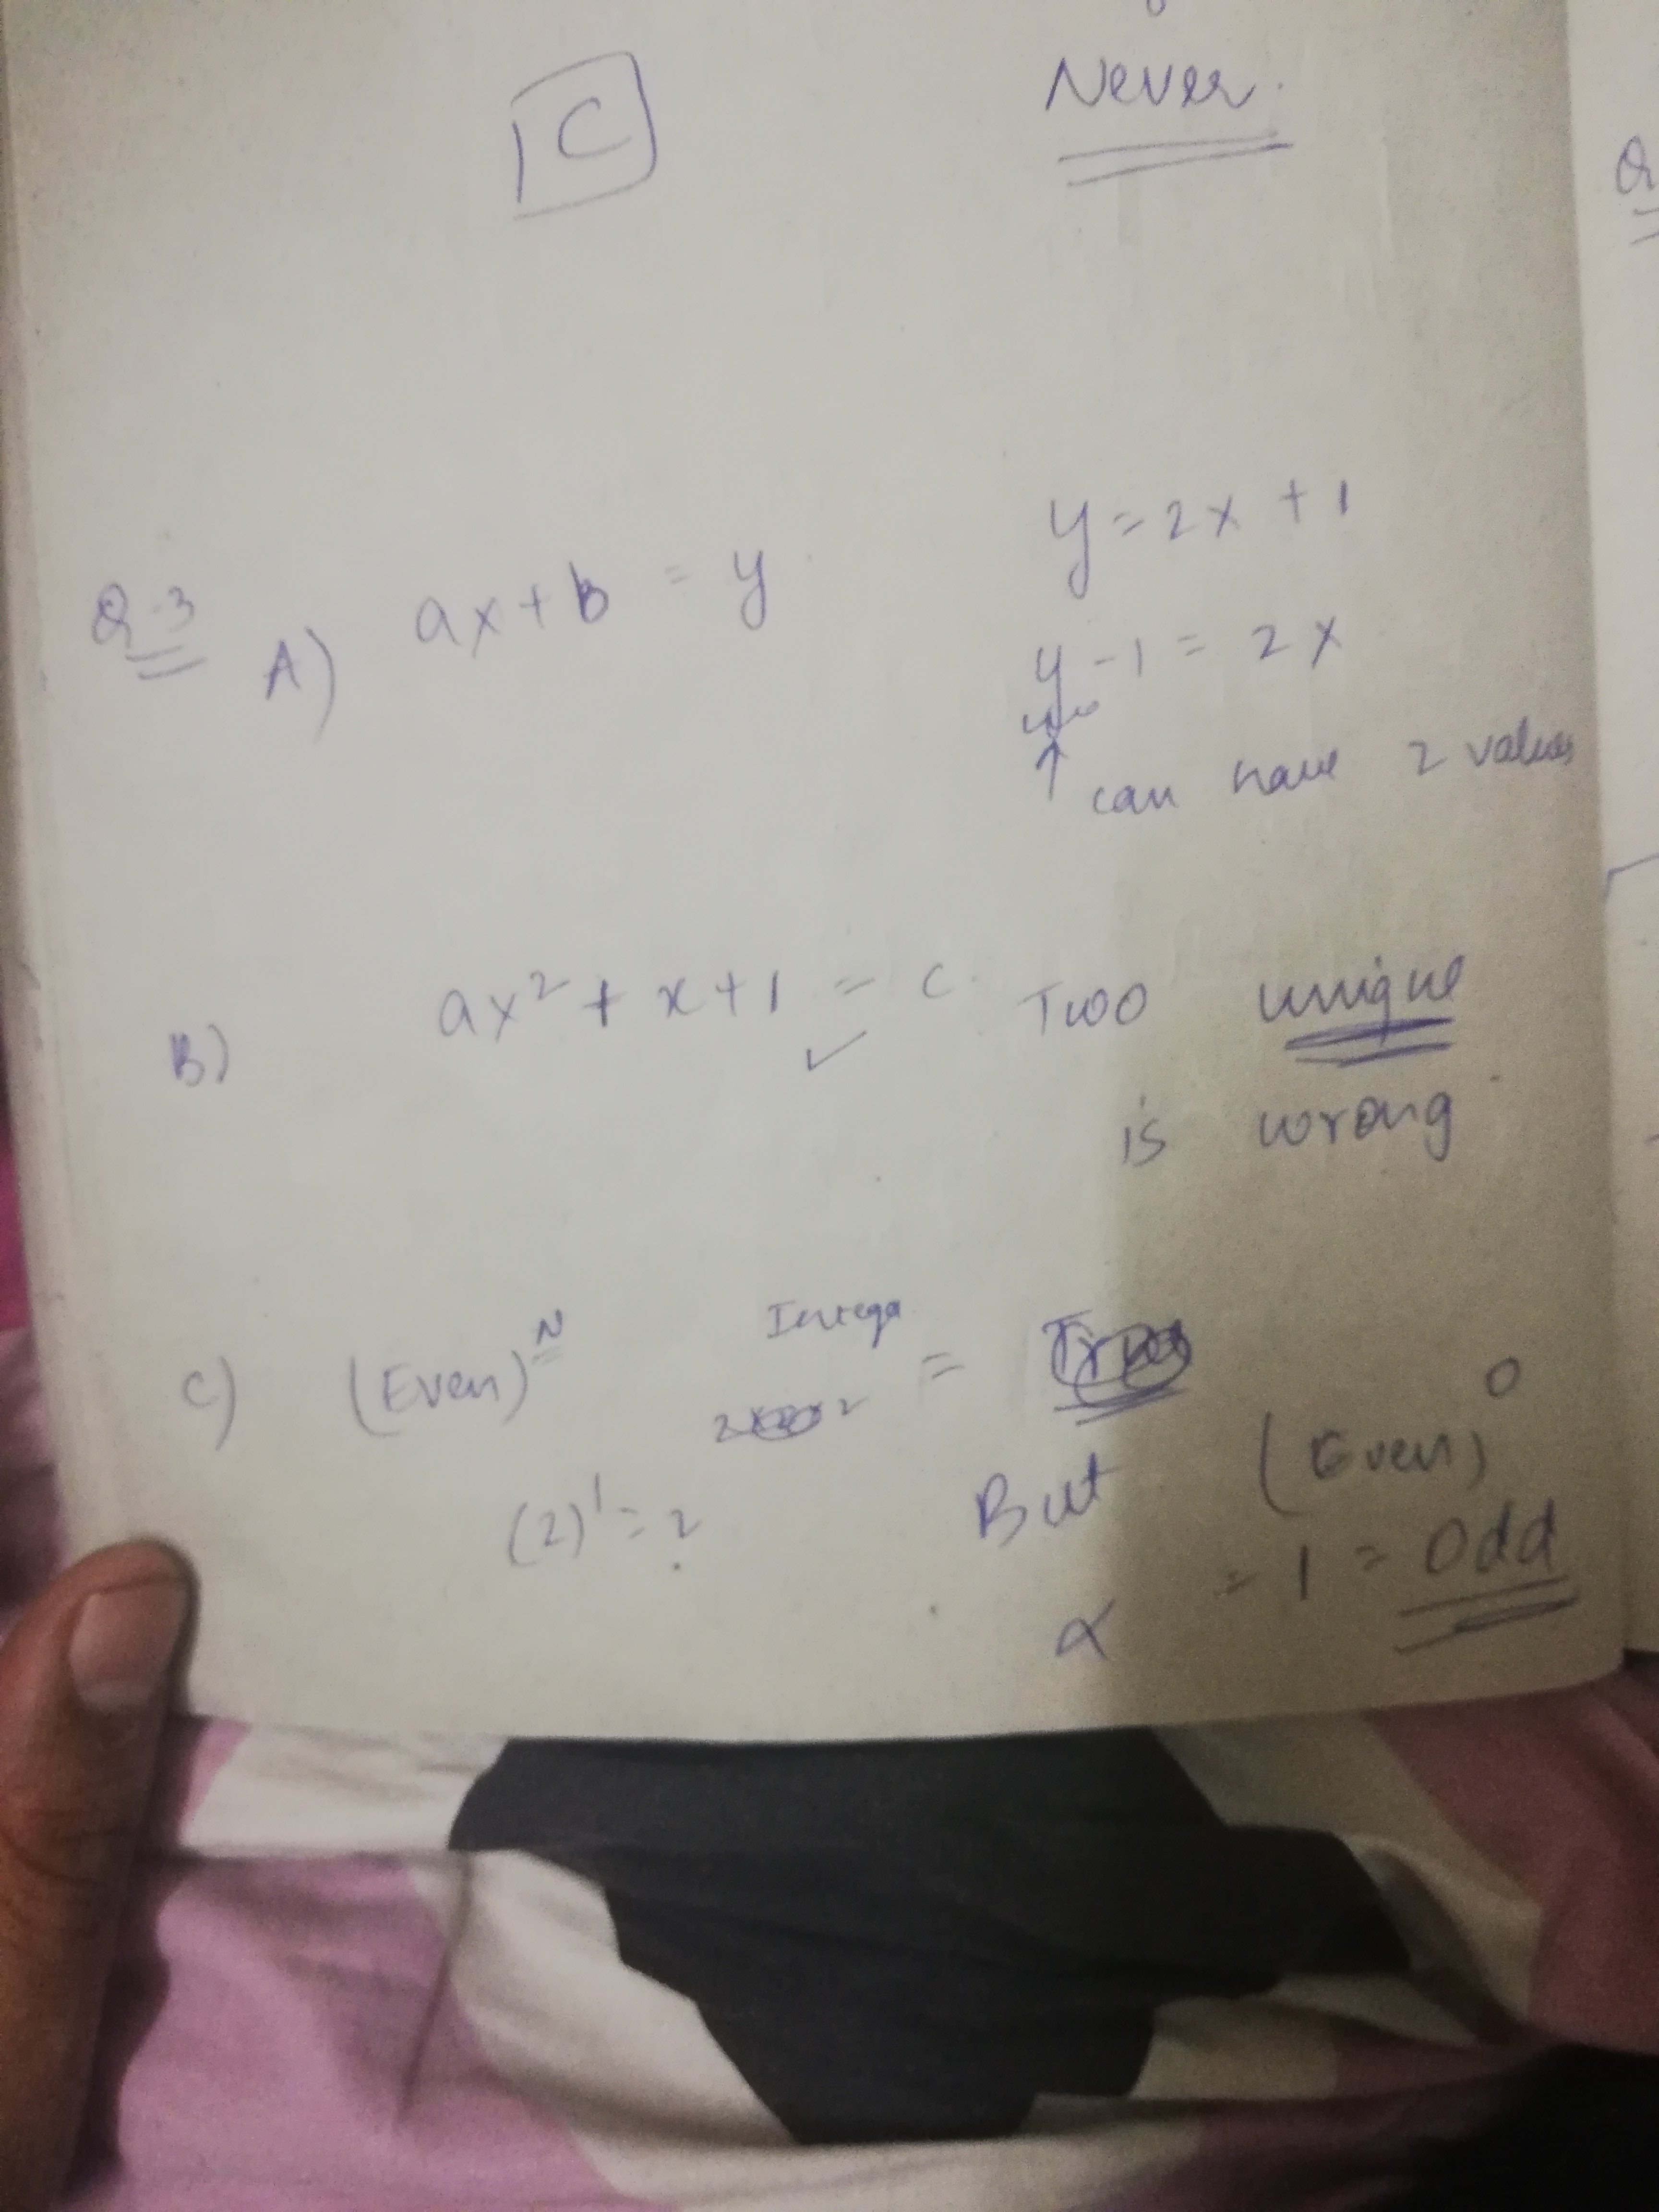 C
Never.
Q
Q.3
A) ax+b = y
y = 2x + 1
y - 1 = 2x
↑ can have 2 values
B) ax² + x + 1 = c. Two unique
✓
is wrong
C) (Even)ᴺ Intega =
But (Even)⁰
(2)¹ = ?
= 1 = Odd